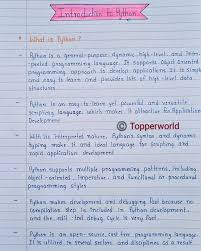 Introduction to Python
What is Python ?
- Python is a general-purpose, dynamic, high-level, and inter-
preted programming language. It supports object oriented
programming approach to develop applications. It is simple
and easy to learn and provides lots of high-level data
structures.
- Python is an easy to learn yet powerful and versatile
scripting language, which makes it attractive for Application
Development
© Topperworld
- With its interpreted nature, Python's syntax and dynamic
typing make it an ideal language for scripting and
rapid application development.
- Python supports multiple programming patterns, including
object-oriented, imperative, and functional or procedural
programming styles.
- Python makes development and debugging fast because no
compilation step is included in Python development,
and the edit-test-debug cycle is very fast.
- Python is an open-source, cost-free programming language.
It is utilized in several sectors and disciplines as a result.